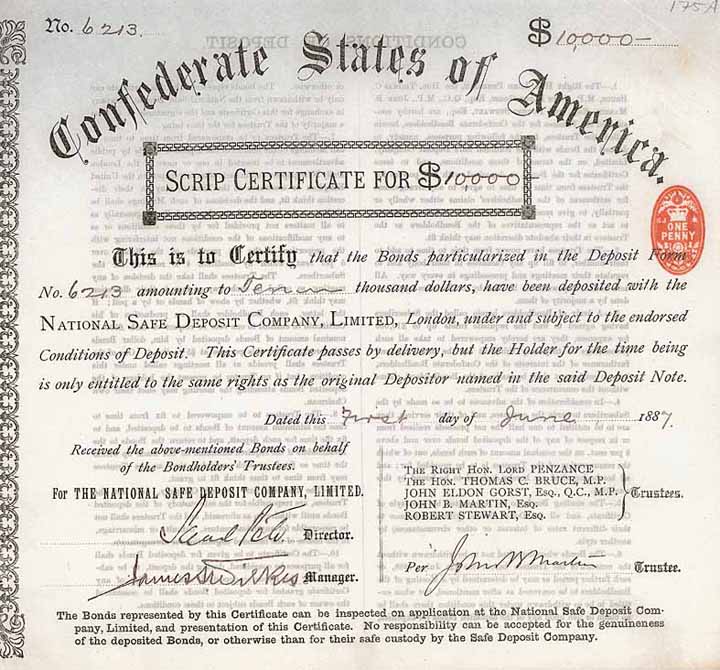 175A
No. 6213.
$10,000-
Confederate States of America.
SCRIP CERTIFICATE FOR $10,000-
ONE
PENNY
This is to Certify that the Bonds particularized in the Deposit Form
No. 6213 amounting to Ten thousand dollars, have been deposited with the
NATIONAL SAFE DEPOSIT COMPANY, LIMITED, London, under and subject to the endorsed
Conditions of Deposit. This Certificate passes by delivery, but the Holder for the time being
is only entitled to the same rights as the original Depositor named in the said Deposit Note.
Dated this First day of June 1887
Received the above-mentioned Bonds on behalf
of the Bondholders' Trustees.
For THE NATIONAL SAFE DEPOSIT COMPANY, LIMITED.
Director.
Manager.
THE RIGHT HON. LORD PENZANCE
THE HON. THOMAS C. BRUCE, M.P.
JOHN ELDON GORST, ESQ., Q.C., M.P.
JOHN B. MARTIN, ESQ.
ROBERT STEWART, ESQ.
Trustees.
Per John B Martin Trustee.
The Bonds represented by this Certificate can be inspected on application at the National Safe Deposit Com-
pany, Limited, and presentation of this Certificate. No responsibility can be accepted for the genuineness
of the deposited Bonds, or otherwise than for their safe custody by the Safe Deposit Company.